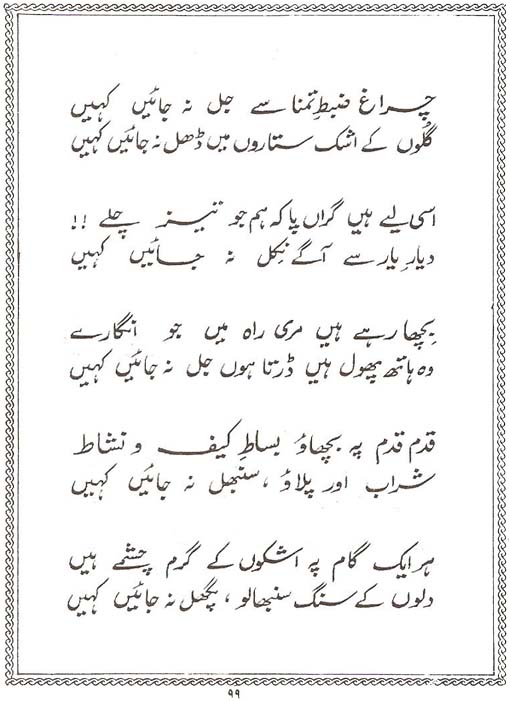 چراغ ضبطِ تمنا سے جل نہ جائیں کہیں
گلُوں کے اشک ستاروں میں ڈھل نہ جائیں کہیں
اسی لیے ہیں گراں پا کہ ہم جو تیز چلے !!
دیارِ یار سے آگے نِکل نہ جائیں کہیں
بِچھا رہے ہیں مری راہ میں جو انگارے
وہ ہاتھ پھول ہیں ڈرتا ہوں جل نہ جائیں کہیں
قدم قدم پہ بچھاؤ بساطِ کیف و نشاط
شراب اور پلاؤ ، سنبھل نہ جائیں کہیں
ہر ایک گام پہ اشکوں کے گرم چشمے ہیں
دلوں کے سنگ سنبھالو ، پگھل نہ جائیں کہیں
۹۹